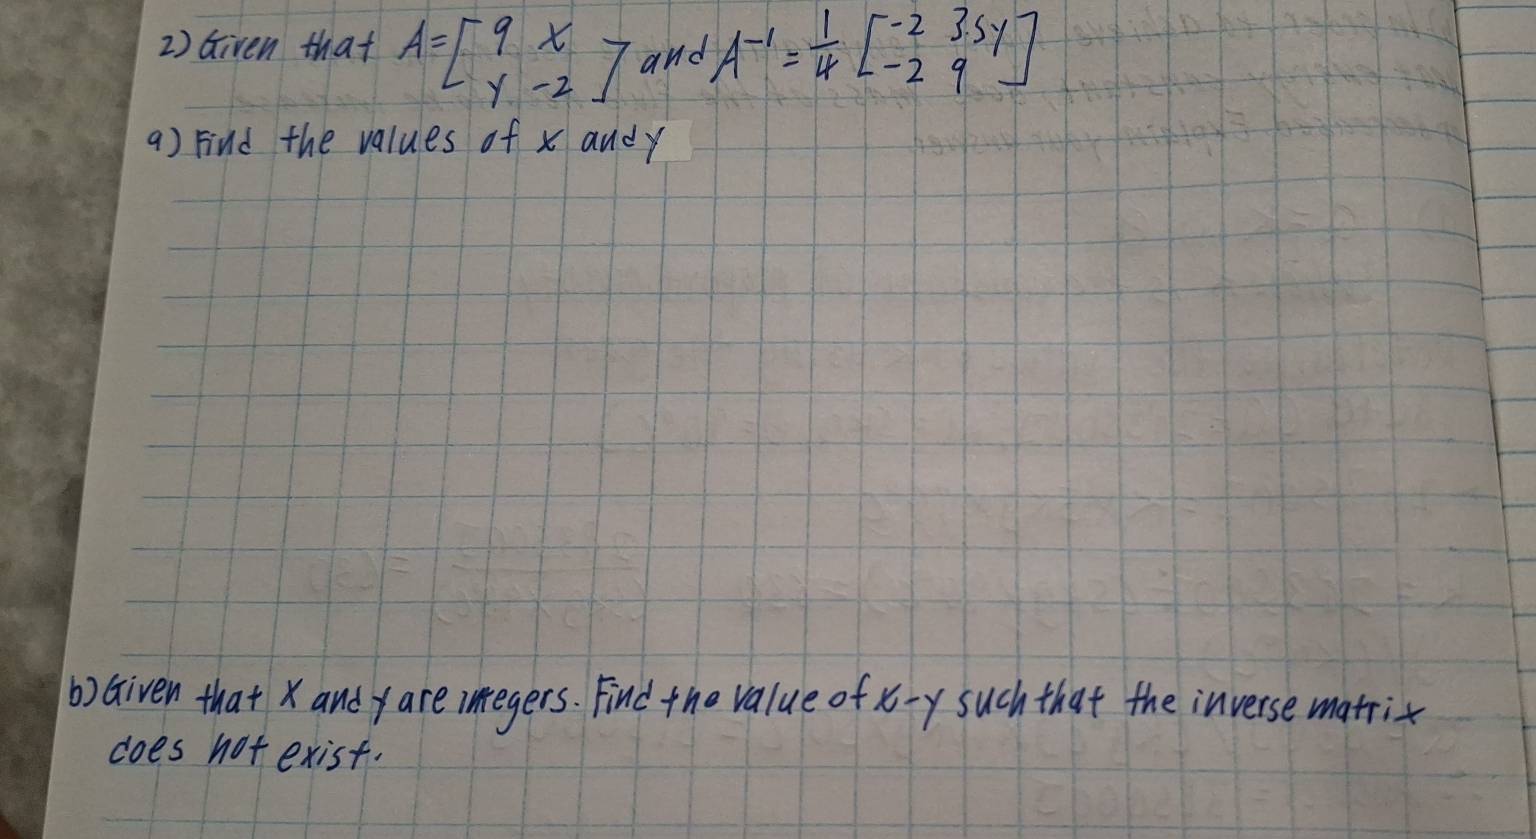 2) Given that A = [ 9 x ] and A⁻¹ = 1/4 [ -2 3.5y ]
y -2 -2 9
a) Find the values of x and y
b) Given that x and y are integers. Find the value of x-y such that the inverse matrix
does not exist.